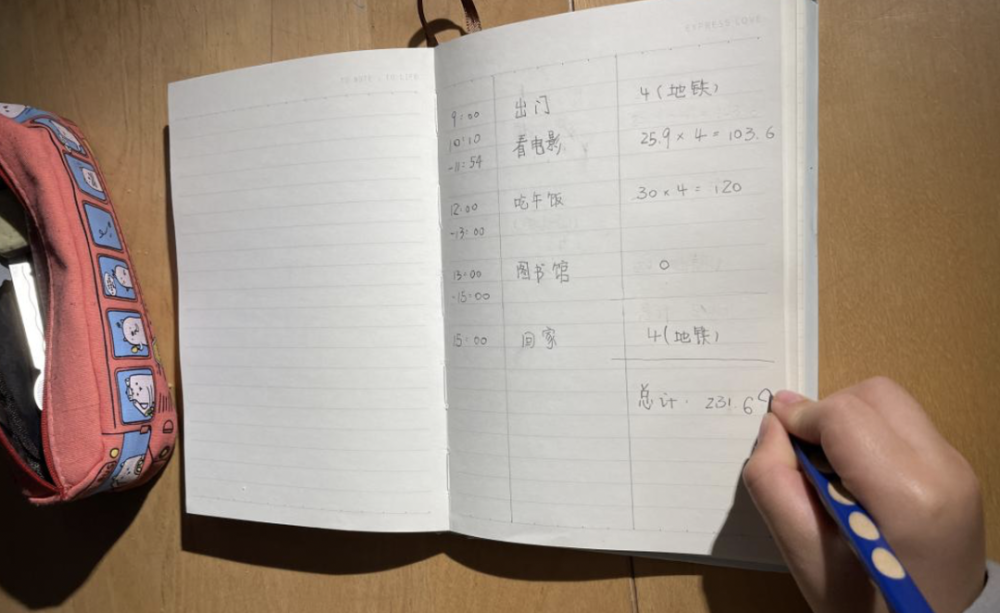 EXPRESS LOVE
9:00 出门 4(地铁)
10:10 看电影 25.9×4=103.6
-11:54
12:00 吃午饭 30×4=120
-13:00
13:00 图书馆 0
-15:00
15:00 回家 4(地铁)
总计. 231.6